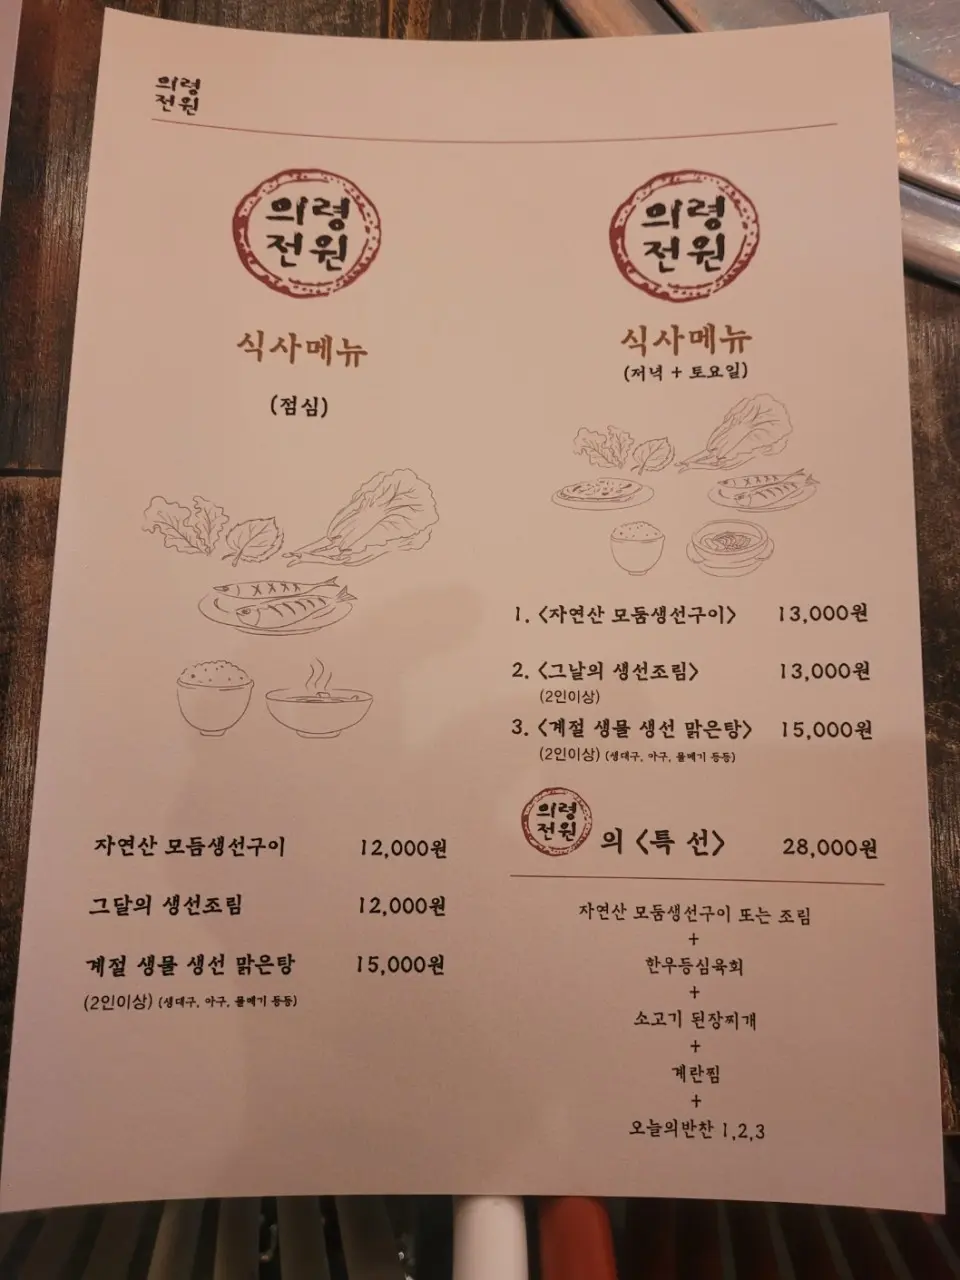 의령
전원
의령
전원
식사메뉴
(점심)
자연산 모둠생선구이 12,000원
그달의 생선조림 12,000원
계절 생물 생선 맑은탕 15,000원
(2인이상) (생대구, 아구, 물메기 등등)
의령
전원
식사메뉴
(저녁 + 토요일)
1. <자연산 모둠생선구이> 13,000원
2. <그날의 생선조림> 13,000원
(2인이상)
3. <계절 생물 생선 맑은탕> 15,000원
(2인이상) (생대구, 아구, 물메기 등등)
의령
전원
의 <특 선> 28,000원
자연산 모둠생선구이 또는 조림
+
한우등심육회
+
소고기 된장찌개
+
계란찜
+
오늘의반찬 1,2,3